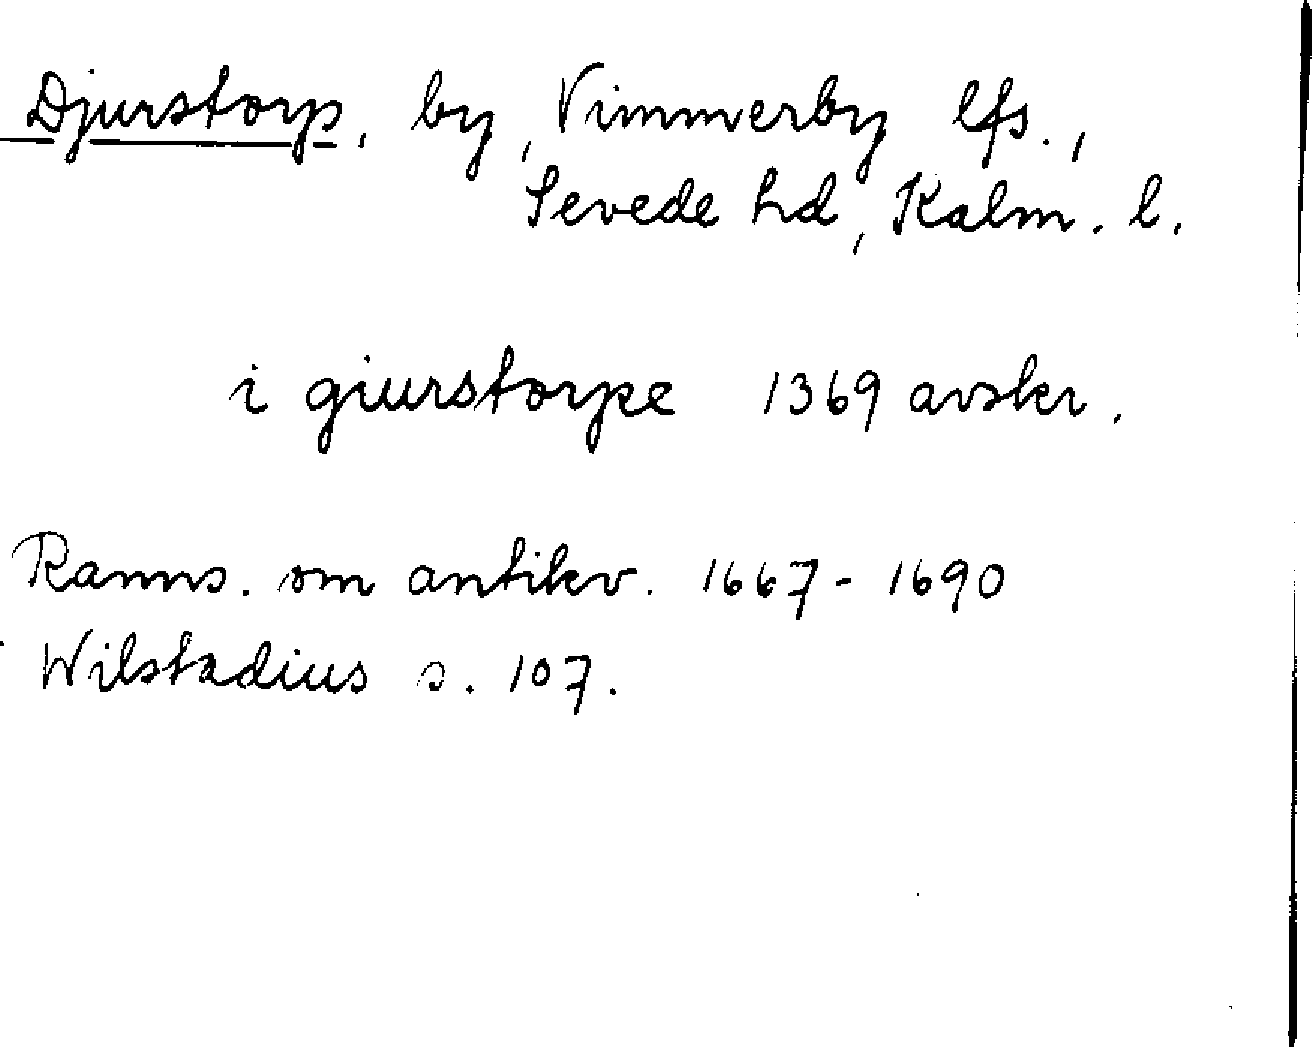 Djurstorp, by, Vimmerby lfs.,
Sevede hd, Kalm. l.
i giurstorpe 1369 avskr.
Ranns. om antikv. 1667-1690
Wilstadius s. 107.